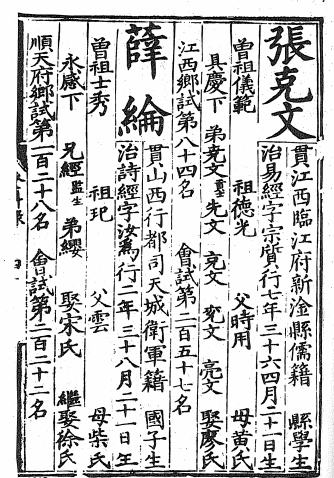 張克文
貫江西臨江府新淦縣儒籍 縣學生
治易經字宗質行七年三十六四月二十一日生
曾祖儀範 祖德光 父時用 母黃氏
具慶下 弟堯文 先文 文 文 亮文 娶廖氏
江西鄉試第八十四名 會試第二百五十七名
薛綸
貫山西行都司天城衛軍籍 國子生
治詩經字汝為行二年三十八月二十一日生
曾祖士秀 祖玘 父雲 母柴氏
永感下 兄經監生 弟纓 娶宋氏 繼娶徐氏
順天府鄉試第一百二十八名 會試第二百二十二名